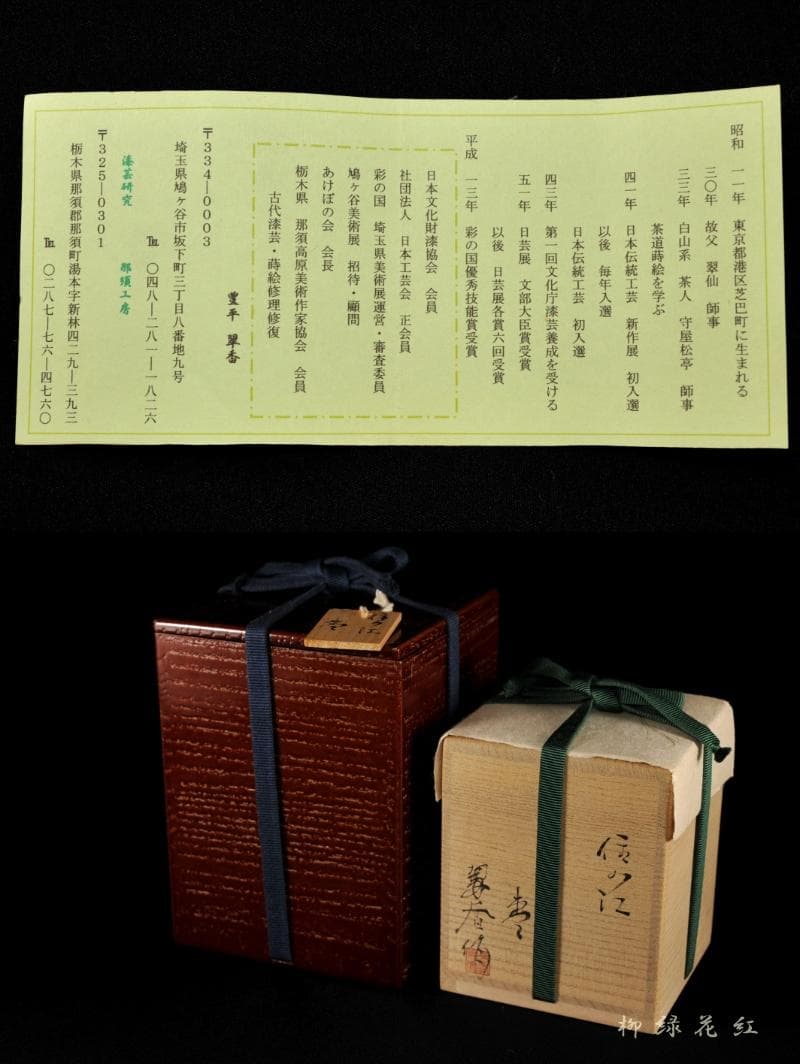 昭和 一一年 東京都港区芝巴町に生まれる
三〇年 故父 翠仙 師事
三三年 白山系 茶人 守屋松亭 師事
茶道蒔絵を学ぶ
四一年 日本伝統工芸 新作展 初入選
以後 毎年入選
日本伝統工芸 初入選
四三年 第一回文化庁漆芸養成を受ける
五一年 日芸展 文部大臣賞受賞
以後 日芸展各賞六回受賞
平成 一三年 彩の国優秀技能賞受賞
日本文化財漆協会 会員
社団法人 日本工芸会 正会員
彩の国 埼玉県美術展運営・審査委員
鳩ヶ谷美術展 招待・顧問
あけぼの会 会長
栃木県 那須高原美術作家協会 会員
古代漆芸・蒔絵修理修復
豊平 翠香
〒334―0003
埼玉県鳩ヶ谷市坂下町三丁目八番地九号
℡ 〇四八―二八一―一八二六
漆芸研究 那須工房
〒325―0301
栃木県那須郡那須町湯本字新林四二九―三九三
℡ 〇二八七―七六―四七六〇
棗
翠香作
柳緑花紅